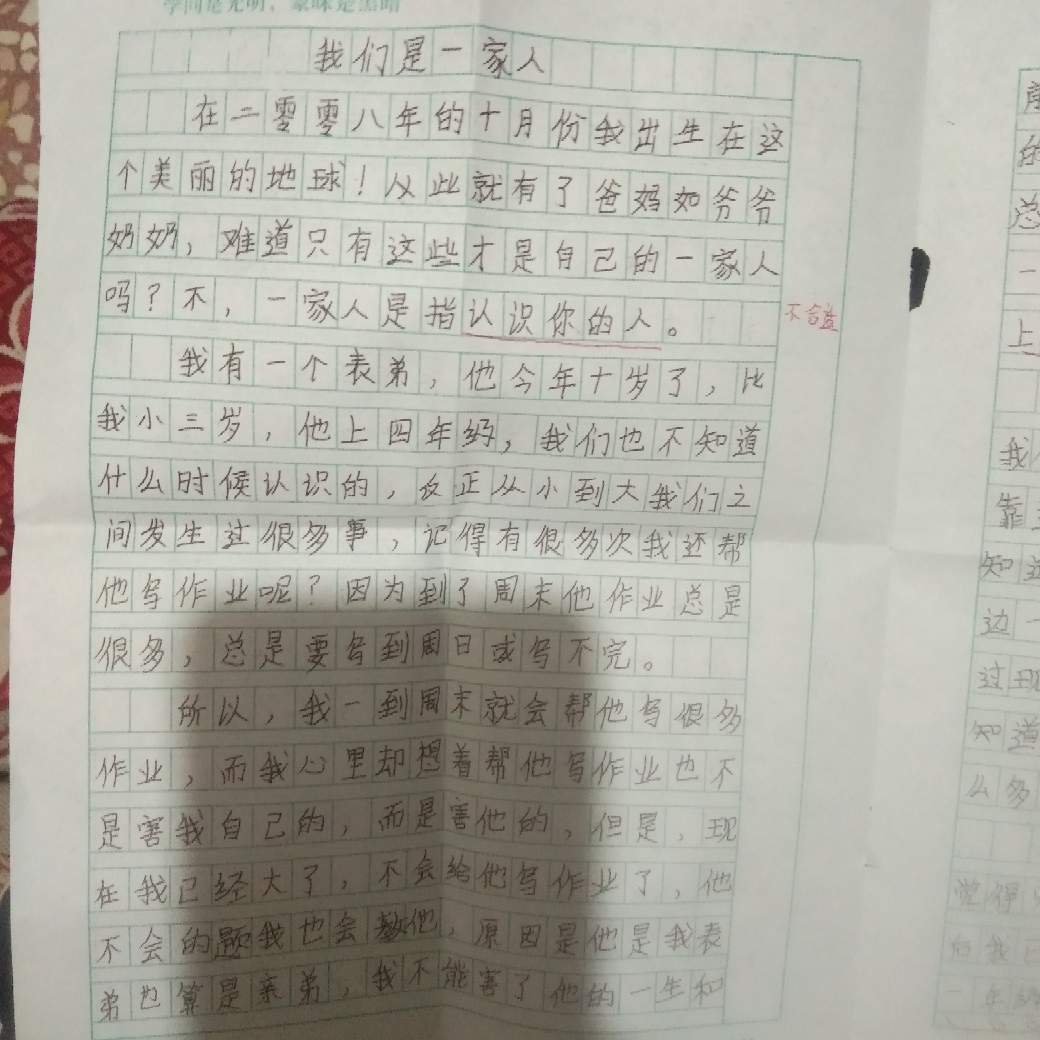 学问是光明，蒙昧是黑暗
我们是一家人
在二零零八年的十月份我出生在这
个美丽的地球！从此就有了爸妈如爷爷
奶奶，难道只有这些才是自己的一家人
吗？不，一家人是指认识你的人。
不合适
我有一个表弟，他今年十岁了，比
我小三岁，他上四年级，我们也不知道
什么时候认识的，反正从小到大我们之
间发生过很多事，记得有很多次我还帮
他写作业呢？因为到了周末他作业总是
很多，总是要写到周日或写不完。
所以，我一到周末就会帮他写很多
作业，而我心里却想着帮他写作业也不
是害我自己的，而是害他的，但是，现
在我已经大了，不会给他写作业了，他
不会的题我也会教他，原因是他是我表
弟也算是亲弟，我不能害了他的一生和
的
总
一
上
我
靠
知道
边一
过现
知道
么多
觉得